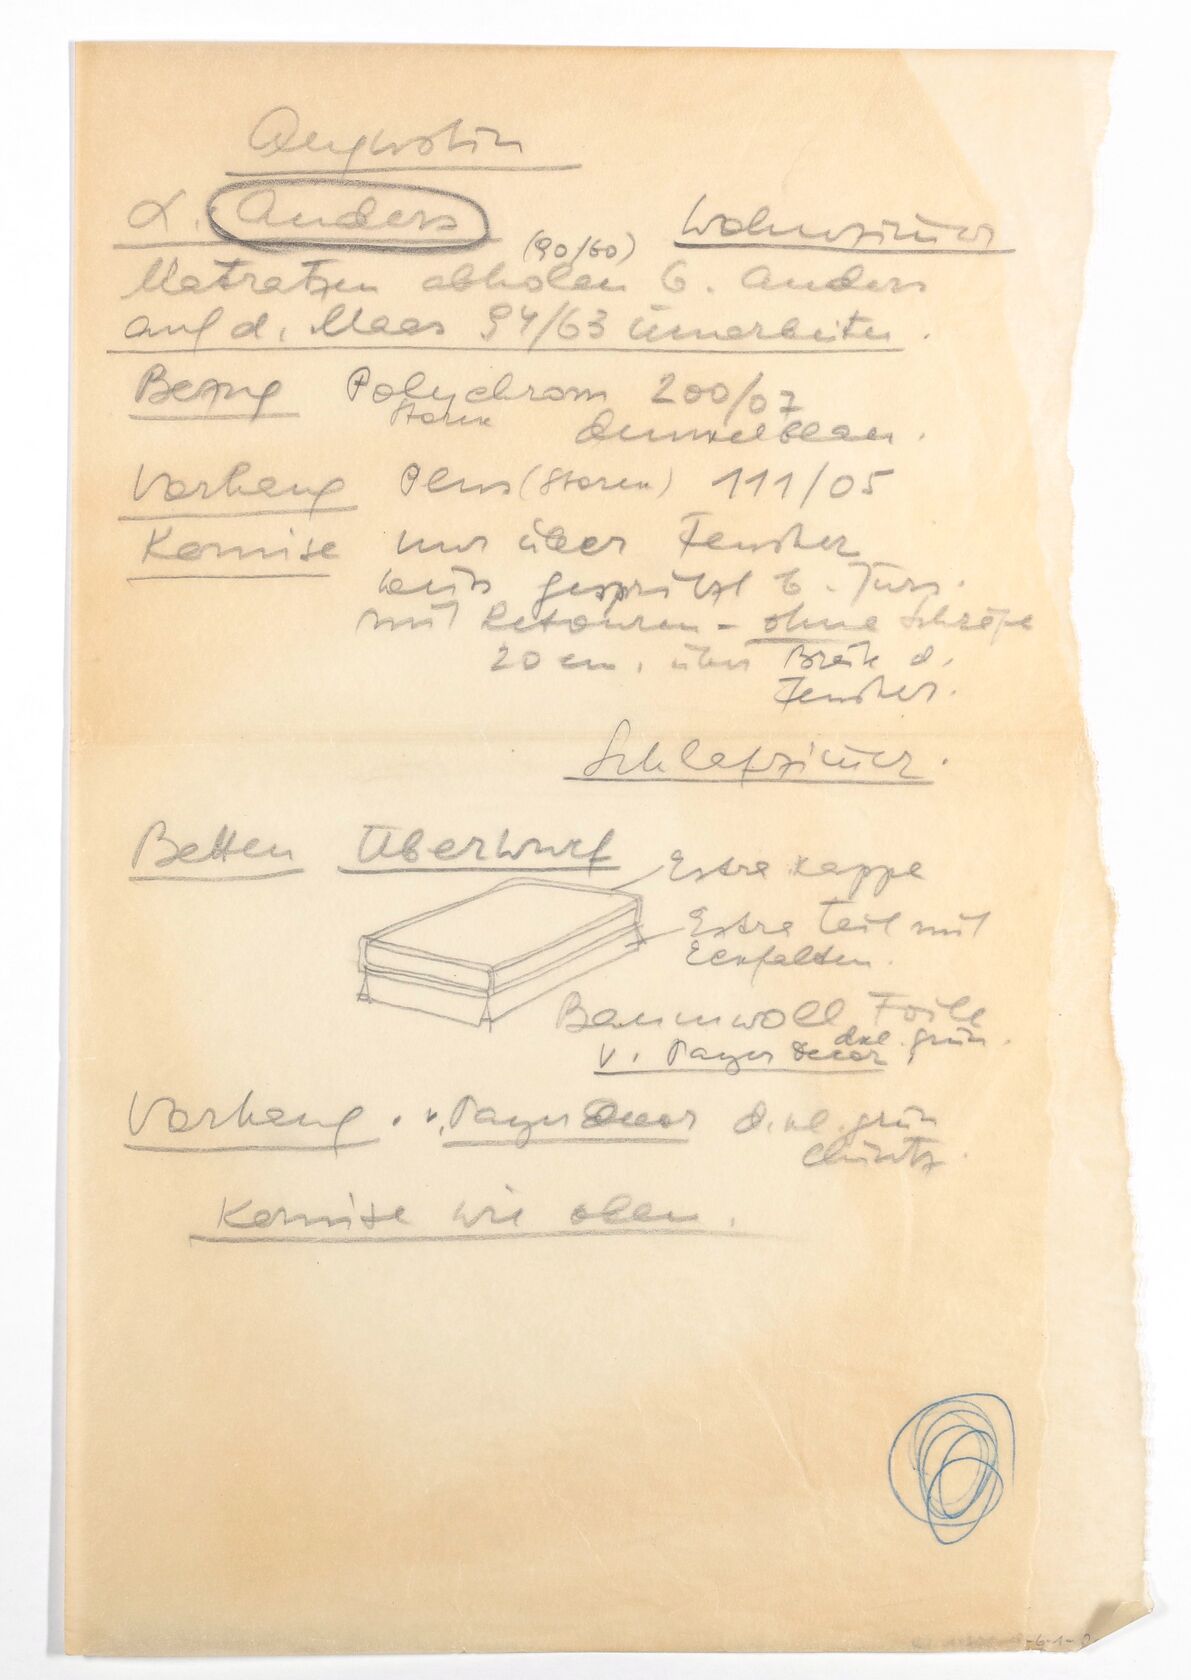 Augustin
L. Anders Wohnzimmer
(90/60)
Matratzen abholen b. Anders
auf d. Maas 94/63 umarbeiten.
Bezug Polychrom 200/07
Storen dunkelblau.
Vorhang Plus (Storen) 111/05
Karnise nur über Fenster
weiss gespritzt b. Türs.
mit Retouren – ohne Schräge
20 cm, über Breite d.
Fenster.
Schlafzimmer.
Betten Überwurf
Extra Kappe
Extra Teil mit
Eckfalten.
Baumwoll Toile
dkl. grün.
v. Payer Decor
Vorhang. v. Payer Decor d.kl. grün
Chintz.
Karnise wie oben.